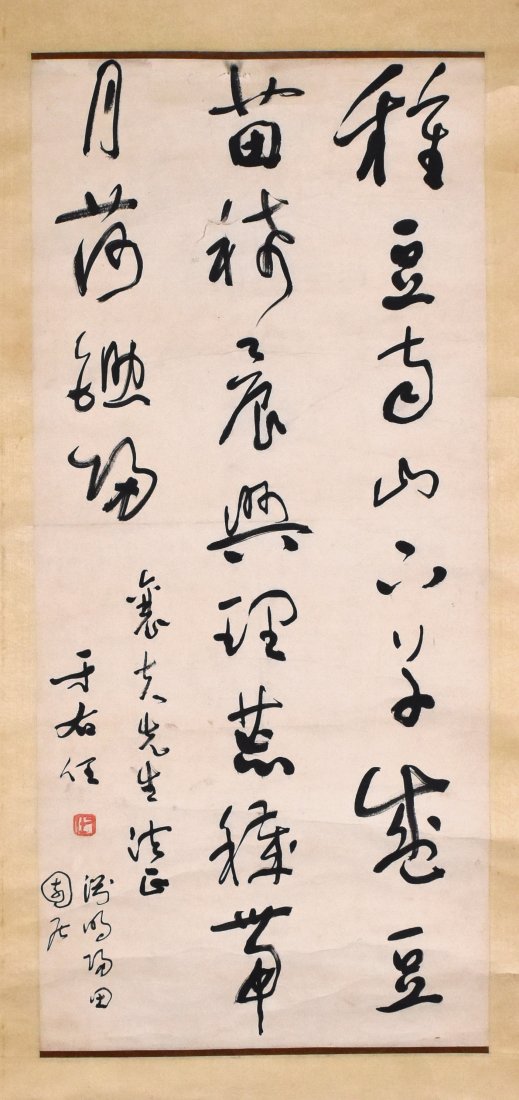 種豆南山下草盛豆
苗稀晨興理荒穢帶
月荷鋤歸
襄先生法正
于右任
淵明歸田
園居